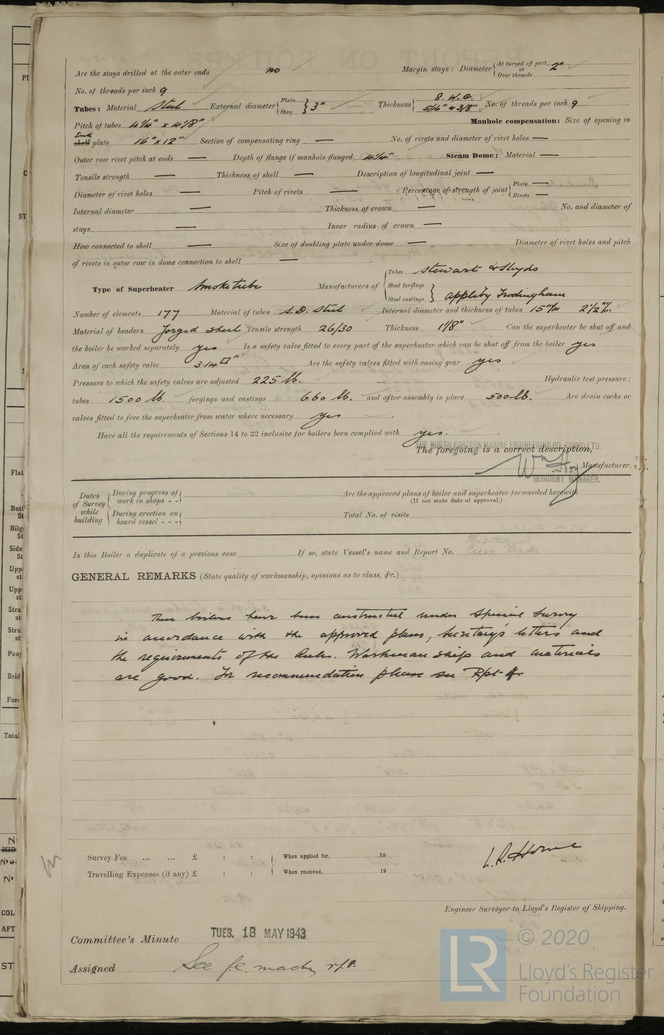 Are the stays drilled at the outer ends no Margin stays: Diameter { At turned off part, or Over threads 2"
No. of threads per inch 9
Tubes: Material Steel External diameter { Plain Stay } 3" Thickness { 8 W.G. 5/16" & 3/8" No. of threads per inch 9
Pitch of tubes 4 1/4" x 4 1/8" Manhole compensation: Size of opening in
End shell plate 16" x 12" Section of compensating ring — No. of rivets and diameter of rivet holes —
Outer row rivet pitch at ends — Depth of flange if manhole flanged Steam Dome: Material —
Tensile strength — Thickness of shell — Description of longitudinal joint —
Diameter of rivet holes — Pitch of rivets — Percentage of strength of joint { Plate — Rivets —
Internal diameter — Thickness of crown — No. and diameter of
stays — Inner radius of crown —
How connected to shell — Size of doubling plate under dome — Diameter of rivet holes and pitch
of rivets in outer row in dome connection to shell —
Type of Superheater Smoke tube Manufacturers of { Tubes Stewart & Lloyds
Steel forgings
Steel castings } Appleby Frodingham
Number of elements 177 Material of tubes S.D. Steel Internal diameter and thickness of tubes 15 m/m 2 1/2 m/m
Material of headers Forged steel Tensile strength 26/30 Thickness 1 1/8" Can the superheater be shut off and
the boiler be worked separately yes Is a safety valve fitted to every part of the superheater which can be shut off from the boiler yes
Area of each safety valve 3.14 □" Are the safety valves fitted with easing gear yes
Pressure to which the safety valves are adjusted 225 lb. Hydraulic test pressure:
tubes 1500 lb. forgings and castings 660 lb. and after assembly in place 500 lb. Are drain cocks or
valves fitted to free the superheater from water where necessary yes
Have all the requirements of Sections 14 to 22 inclusive for boilers been complied with yes.
THE NORTH EASTERN MARINE ENGINEERING CO. (1938) LTD.
The foregoing is a correct description,
Manufacturer.
RESIDENT MANAGER.
Dates of Survey while building { During progress of work in shops - - } { During erection on board vessel - - - }
Are the approved plans of boiler and superheater forwarded herewith
(If not state date of approval.)
Total No. of visits
Is this Boiler a duplicate of a previous case If so, state Vessel's name and Report No.
GENERAL REMARKS (State quality of workmanship, opinions as to class, &c.)
These boilers have been constructed under Special Survey
in accordance with the approved plans, Secretary's letters and
the requirements of the Rules. Workmanship and materials
are good. For recommendation please see Rpt 4.
Survey Fee ... ... £ : : When applied for, 19
Travelling Expenses (if any) £ : : When received, 19
L. R. Horne
Engineer Surveyor to Lloyd's Register of Shipping.
Committee's Minute TUES. 18 MAY 1943
Assigned See f.e. machy rpt
LR © 2020
Lloyd's Register
Foundation